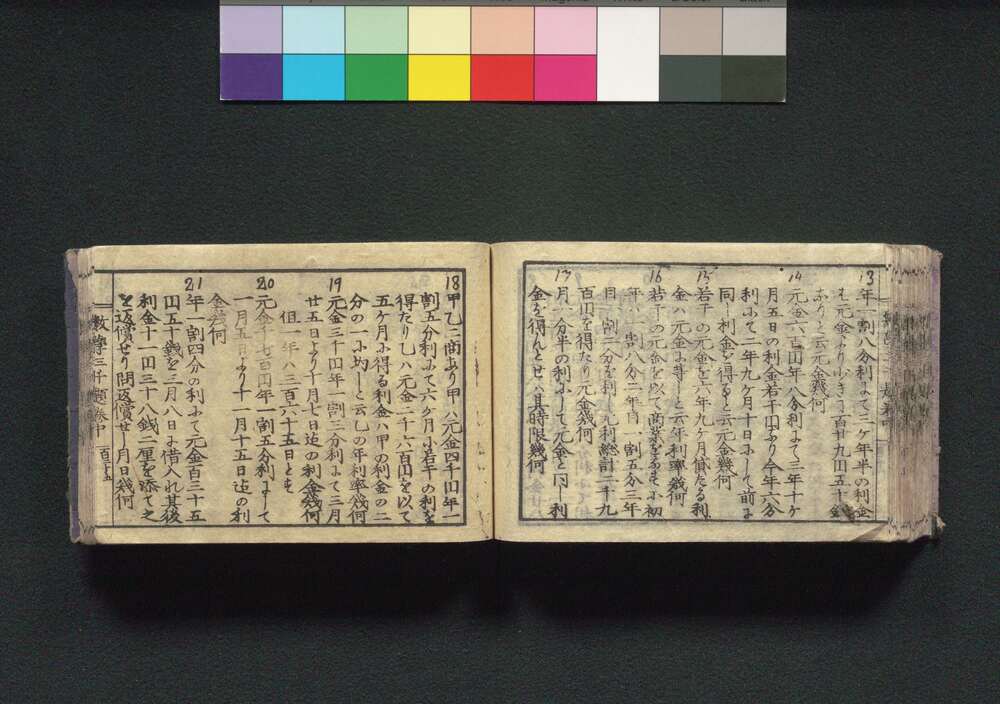 13 年一割八分利にて二ヶ年半の利金
は元金より小きこ百廿九円五十銭
ありと云元金幾何
14 元金六百円年八分利にて三年十ヶ
月五日の利金若干円あり今年六分
利にて二年九ヶ月十日にして前に
同じ利金を得ると云元金幾何
15 若干の元金を六年九ヶ月貸たる利
金ハ元金に等しと云年利率幾何
16 若干の元金を以て商業をなすに初
年ハ一割八分二年目一割五分三年
目一割二分を利し元利総計二千九
百円を得たり元金幾何
17 月八分半の利にして元金と同し利
金を得んとせハ其時限幾何
18 甲乙二商あり甲ハ元金四千円年一
割五分利にて六ヶ月に若干の利を
得たり乙ハ元金二千六百円を以て
五ヶ月に得る利金ハ甲の利金の二
分の一に均しと云乙の年利率幾何
19 元金三千円年一割三分利にて三月
廿五日より十月七日迄の利金幾何
但一年ハ三百六十五日とす
20 元金千七百円年一割五分利にして
一月五日より十一月十五日迄の利
金幾何
21 年一割四分の利にて元金百三十五
円五十銭を三月八日に借入れ其後
利金十一円三十八銭二厘を添て之
を返償せり問返償せし月日幾何
数学三千題巻中
百二十五